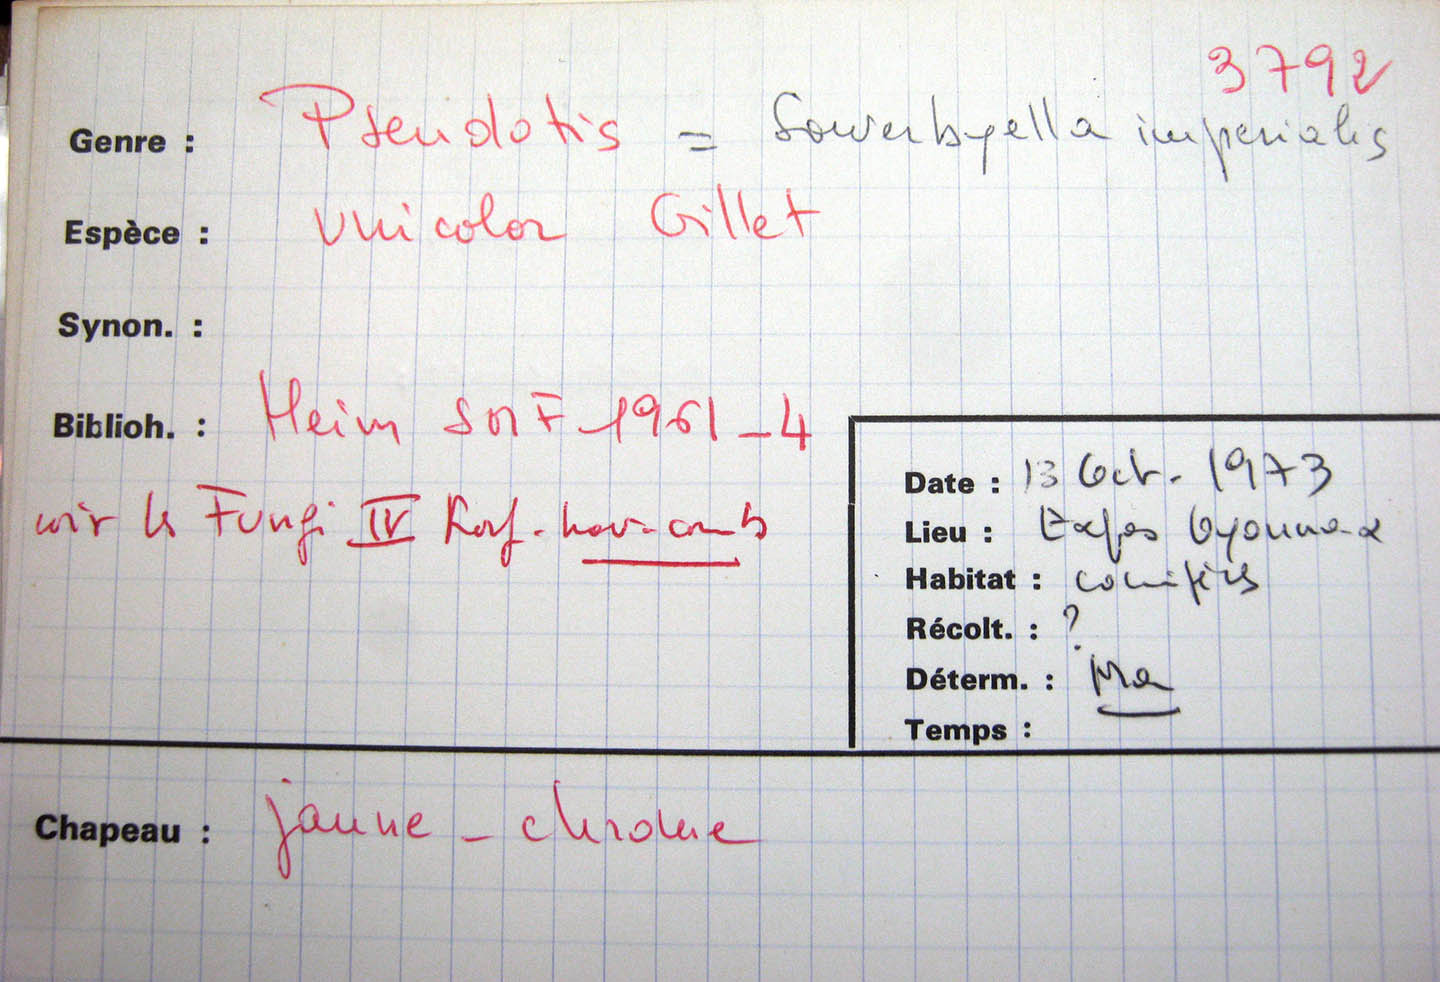 3792
Genre : Pseudotis = Sowerbyella imperialis
Espèce : unicolor Gillet
Synon. :
Biblioh. : Heim SMF 1961-4
voir Fungi IV Korf. nov. comb
Date : 13 Oct. 1973
Lieu : Expos Oyonnax
Habitat : conifères
Récolt. : ?
Déterm. : Ma
Temps :
Chapeau : jaune - chrome